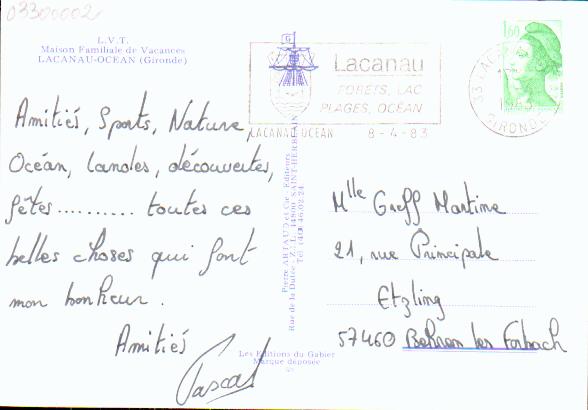 03300002
L.V.T.
Maison Familiale de Vacances
LACANAU-OCEAN (Gironde)
Lacanau
FORETS, LAC
PLAGES, OCÉAN
LACANAU OCEAN 8-4-83
1,60
GIRONDE
Amitiés, Sports, Nature,
Océan, Landes, découvertes,
fêtes.......... toutes ces
belles choses qui font
mon bonheur.
Amitiés
Pascal
Pierre ARTAUD et Cie - Editeurs
Rue de la Dutée - Z.I.L. 44800 SAINT-HERBLAIN
Mlle Greff Martine
21, rue Principale
Etzling
57460 Behren les Forbach
Les Editions du Gabier
Marque déposée